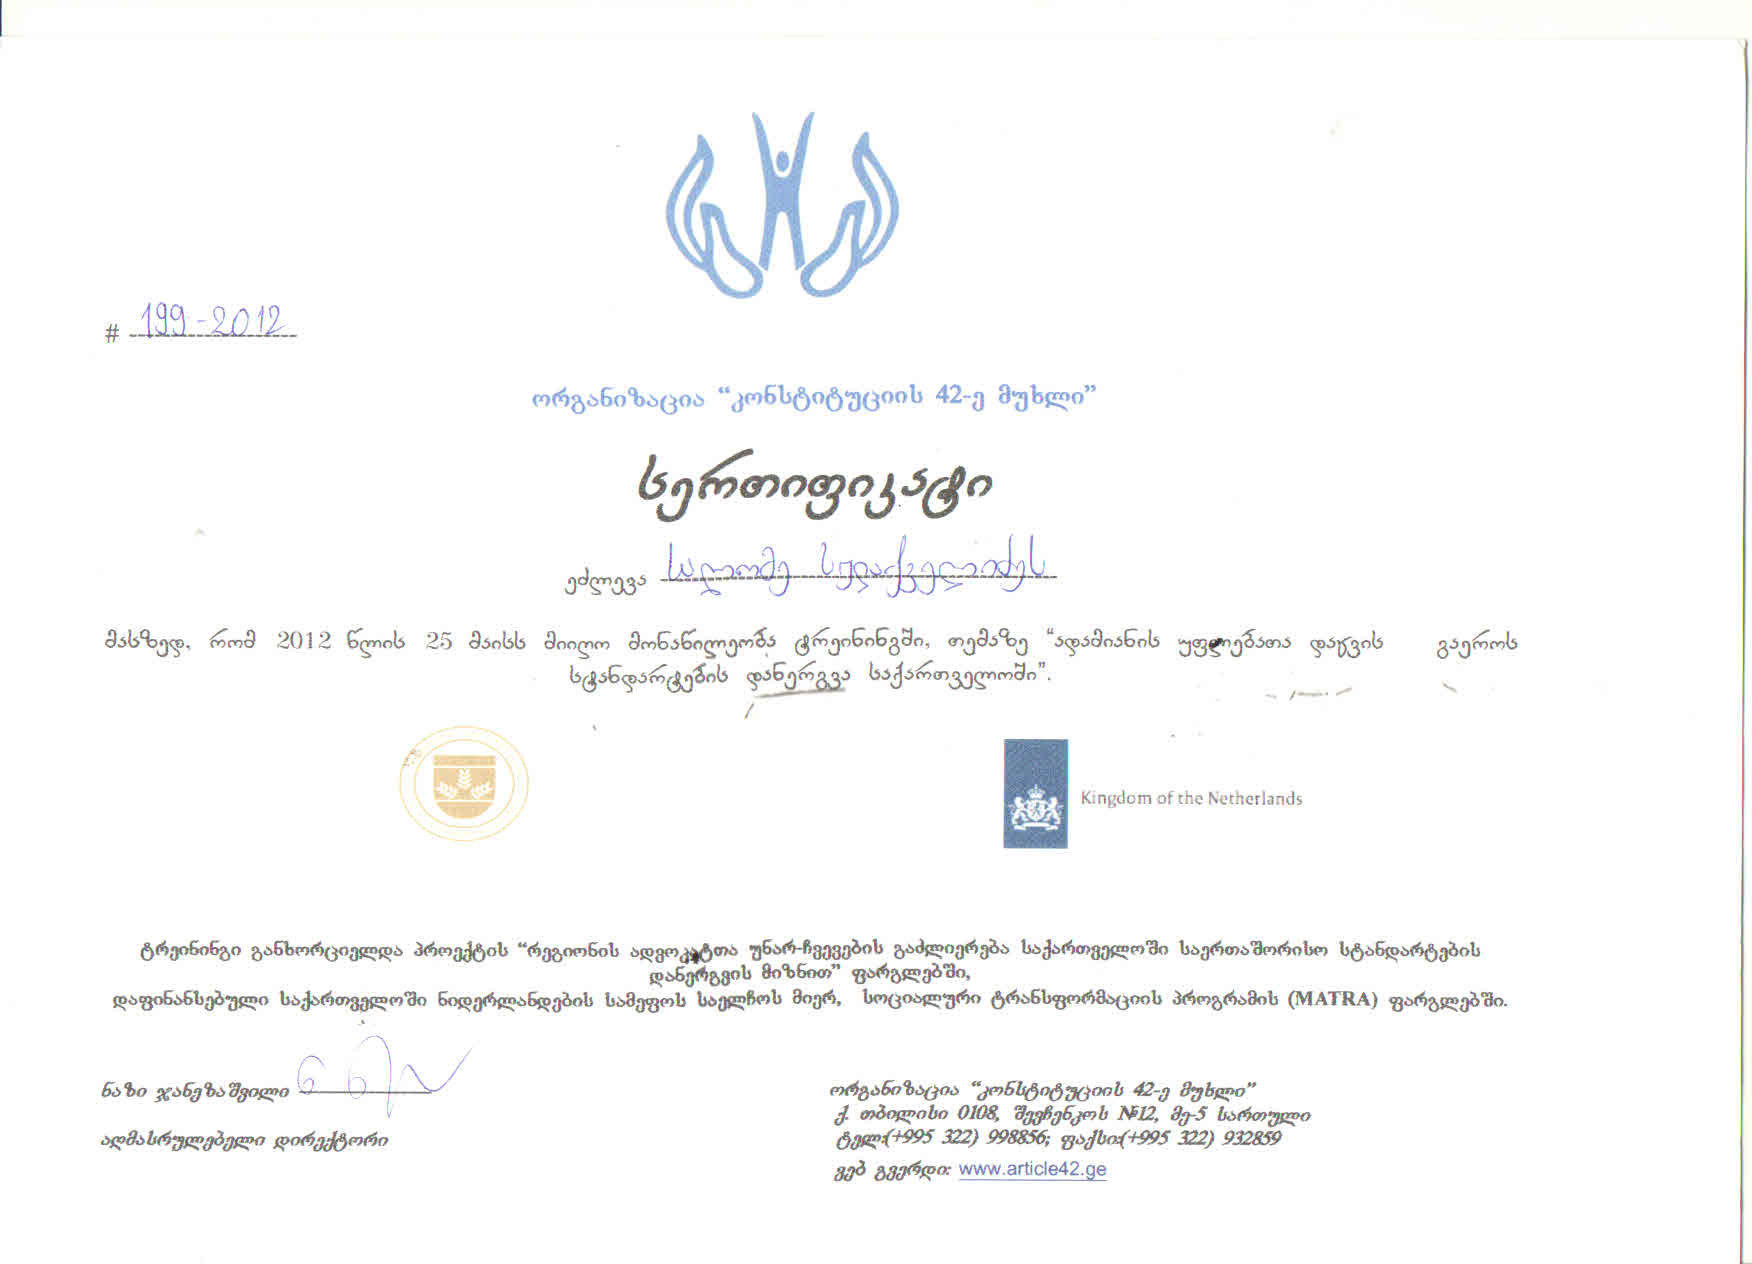 # 199-2012
ორგანიზაცია “კონსტიტუციის 42-ე მუხლი”
სერთიფიკატი
ეძლევა სალომე სეფიაშვილიძეს
მასზედ, რომ 2012 წლის 25 მაისს მიიღო მონაწილეობა ტრეინინგში, თემაზე “ადამიანის უფლებათა დაცვის გაეროს
სტანდარტების დანერგვა საქართველოში”.
Kingdom of the Netherlands
ტრეინინგი განხორციელდა პროექტის “რეგიონის ადვოკატთა უნარ-ჩვევების გაძლიერება საქართველოში საერთაშორისო სტანდარტების
დანერგვის მიზნით” ფარგლებში,
დაფინანსებული საქართველოში ნიდერლანდების სამეფოს საელჩოს მიერ, სოციალური ტრანსფორმაციის პროგრამის (MATRA) ფარგლებში.
ნაზი ჯანეზაშვილი
აღმასრულებელი დირექტორი
ორგანიზაცია “კონსტიტუციის 42-ე მუხლი”
ქ. თბილისი 0108, შევჩენკოს №12, მე-5 სართული
ტელ:(+995 322) 998856; ფაქსი:(+995 322) 932859
ვებ გვერდი: www.article42.ge